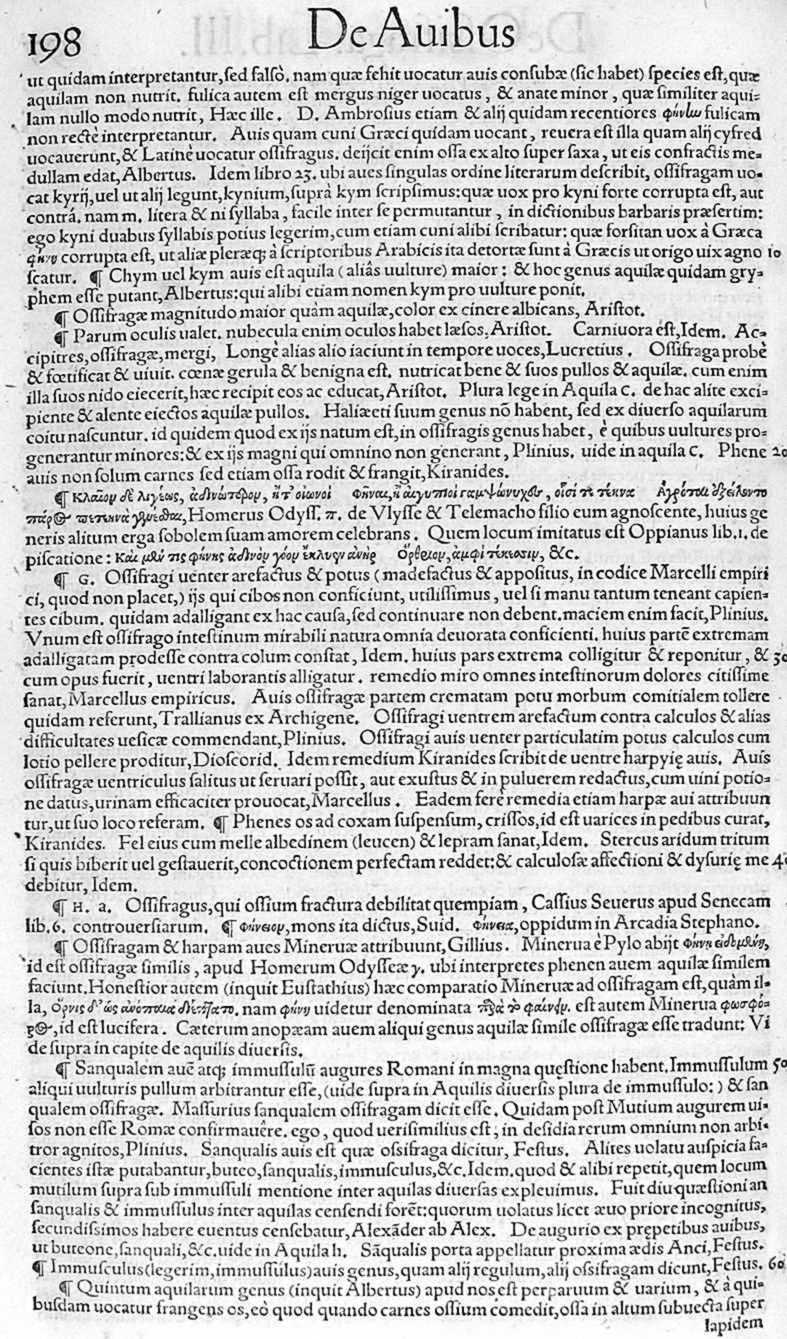 198 De Auibus
ut quidam interpretantur, sed falsò. nam quæ fehit uocatur auis consubæ (sic habet) species est, quæ
aquilam non nutrit. fulica autem est mergus niger uocatus, & anate minor, quæ similiter aqui-
lam nullo modo nutrit, Hæc ille. D. Ambrosius etiam & alij quidam recentiores φήνlω fulicam
non rectè interpretantur. Auis quam cuni Græci quidam uocant, reuera est illa quam alij cyfred
uocauerunt, & Latinè uocatur ossifragus. deijcit enim ossa ex alto super saxa, ut eis confractis me-
dullam edat, Albertus. Idem libro 23. ubi aues singulas ordine literarum describit, ossifragam uo-
cat kyrij, uel ut alij legunt, kynium, suprà kym scripsimus: quæ uox pro kyni forte corrupta est, aut
contrá. nam m. litera & ni syllaba, facile inter se permutantur, in dictionibus barbaris præsertim:
ego kyni duabus syllabis potius legerim, cum etiam cuni alibi scribatur: quæ forsitan uox à Græca
φήνη corrupta est, ut aliæ pleræq; à scriptoribus Arabicis ita detortæ sunt à Græcis ut origo uix agno 10
scatur. ¶ Chym uel kym auis est aquila (aliâs uulture) maior: & hoc genus aquilæ quidam gry-
phem esse putant, Albertus: qui alibi etiam nomen kym pro uulture ponit.
¶ Ossifragæ magnitudo maior quàm aquilæ, color ex cinere albicans, Aristot.
¶ Parum oculis ualet. nubecula enim oculos habet læsos, Aristot. Carniuora est, Idem. Ac-
cipitres, ossifragæ, mergi, Longè alias alio iaciunt in tempore uoces, Lucretius. Ossifraga probè
& fœtificat & uiuit. cœnæ gerula & benigna est. nutricat bene & suos pullos & aquilæ. cum enim
illa suos nido eiecerit, hæc recipit eos ac educat, Aristot. Plura lege in Aquila C. de hac alite exci-
piente & alente eiectos aquilæ pullos. Haliæeti suum genus nō habent, sed ex diuerso aquilarum
coitu nascuntur. id quidem quod ex ijs natum est, in ossifragis genus habet, è quibus uultures pro-
generantur minores: & ex ijs magni qui omnino non generant, Plinius. uide in aquila C. Phene 20
auis non solum carnes sed etiam ossa rodit & frangit, Kiranides.
¶ Κλαῖον δὲ λιγέως, ἁδινώτερον, ἤ τ' οἰωνοὶ Φῆναι, ἢ αἰγυπιοὶ γαμψώνυχες, οἷσί τε τέκνα Ἀγρόται ἐξείλοντο
πάρος πετεηνὰ γενέσθαι, Homerus Odyss. π. de Vlysse & Telemacho filio eum agnoscente, huius ge
neris alitum erga sobolem suam amorem celebrans. Quem locum imitatus est Oppianus lib. 1. de
piscatione: Καὶ μέν τις φήνης ἁδινὸν γόον ἔκλυεν ἀνὴρ Ὄρθριον, ἀμφὶ τέκεσσιν, &c.
¶ G. Ossifragi uenter arefactus & potus (madefactus & appositus, in codice Marcelli empiri
ci, quod non placet,) ijs qui cibos non conficiunt, utilissimus, uel si manu tantum teneant capien-
tes cibum. quidam adalligant ex hac causa, sed continuare non debent. maciem enim facit, Plinius.
Vnum est ossifrago intestinum mirabili natura omnia deuorata conficienti. huius partē extremam
adalligatam prodesse contra colum constat, Idem. huius pars extrema colligitur & reponitur, & 30
cum opus fuerit, uentri laborantis alligatur. remedio miro omnes intestinorum dolores citissime
sanat, Marcellus empiricus. Auis ossifragæ partem crematam potu morbum comitialem tollere
quidam referunt, Trallianus ex Archigene. Ossifragi uentrem arefactum contra calculos & alias
difficultates uesicæ commendant, Plinius. Ossifragi auis uenter particulatim potus calculos cum
lotio pellere proditur, Dioscorid. Idem remedium Kiranides scribit de uentre harpyię auis. Auis
ossifragæ uentriculus salitus ut seruari possit, aut exustus & in puluerem redactus, cum uini potio-
ne datus, urinam efficaciter prouocat, Marcellus. Eadem ferè remedia etiam harpæ aui attribuun
tur, ut suo loco referam. ¶ Phenes os ad coxam suspensum, crissos, id est uarices in pedibus curat,
Kiranides. Fel eius cum melle albedinem (leucen) & lepram sanat, Idem. Stercus aridum tritum
si quis biberit uel gestauerit, concoctionem perfectam reddet: & calculosæ affectioni & dysurię me 40
debitur, Idem.
¶ H. a. Ossifragus, qui ossium fractura debilitat quempiam, Cassius Seuerus apud Senecam
lib. 6. controuersiarum. ¶ Φήνειον, mons ita dictus, Suid. Φήνεια, oppidum in Arcadia Stephano.
¶ Ossifragam & harpam aues Mineruæ attribuunt, Gillius. Minerua è Pylo abijt φήνῃ εἰδομένη,
id est ossifragæ similis, apud Homerum Odysseæ γ. ubi interpretes phenen auem aquilæ similem
faciunt. Honestior autem (inquit Eustathius) hæc comparatio Mineruæ ad ossifragam est, quàm il-
la, Ὄρνις δ' ὣς ἀνοπαῖα διέπτατο. nam φήνη uidetur denominata παρὰ τὸ φαίνειν. est autem Minerua φωσφό-
ρος, id est lucifera. Cæterum anopæam auem aliqui genus aquilæ simile ossifragæ esse tradunt: Vi
de supra in capite de aquilis diuersis.
¶ Sanqualem auē atq; immussulū augures Romani in magna quęstione habent. Immussulum 50
aliqui uulturis pullum arbitrantur esse, (uide supra in Aquilis diuersis plura de immussulo:) & san
qualem ossifragæ. Massurius sanqualem ossifragam dicit esse. Quidam post Mutium augurem ui-
sos non esse Romæ confirmauêre. ego, quod uerisimilius est, in desidia rerum omnium non arbi-
tror agnitos, Plinius. Sanqualis auis est quæ ossifraga dicitur, Festus. Alites uolatu auspicia fa-
cientes istæ putabantur, buteo, sanqualis, immusculus, &c. Idem. quod & alibi repetit, quem locum
mutilum supra sub immussuli mentione inter aquilas diuersas expleuimus. Fuit diu quæstioni an
sanqualis & immussulus inter aquilas censendi forēt: quorum uolatus licet æuo priore incognitus,
secundissimos habere euentus censebatur, Alexāder ab Alex. De augurio ex prępetibus auibus,
ut buteone, sanquali, &c. uide in Aquila h. Sāqualis porta appellatur proxima ædis Anci, Festus.
¶ Immusculus (legerim, immussulus) auis genus, quam alij regulum, alij ossifragam dicunt, Festus. 60
¶ Quintum aquilarum genus (inquit Albertus) apud nos est perparuum & uarium, & à qui-
busdam uocatur frangens os, eò quod quando carnes ossium comedit, ossa in altum subuecta super
lapidem